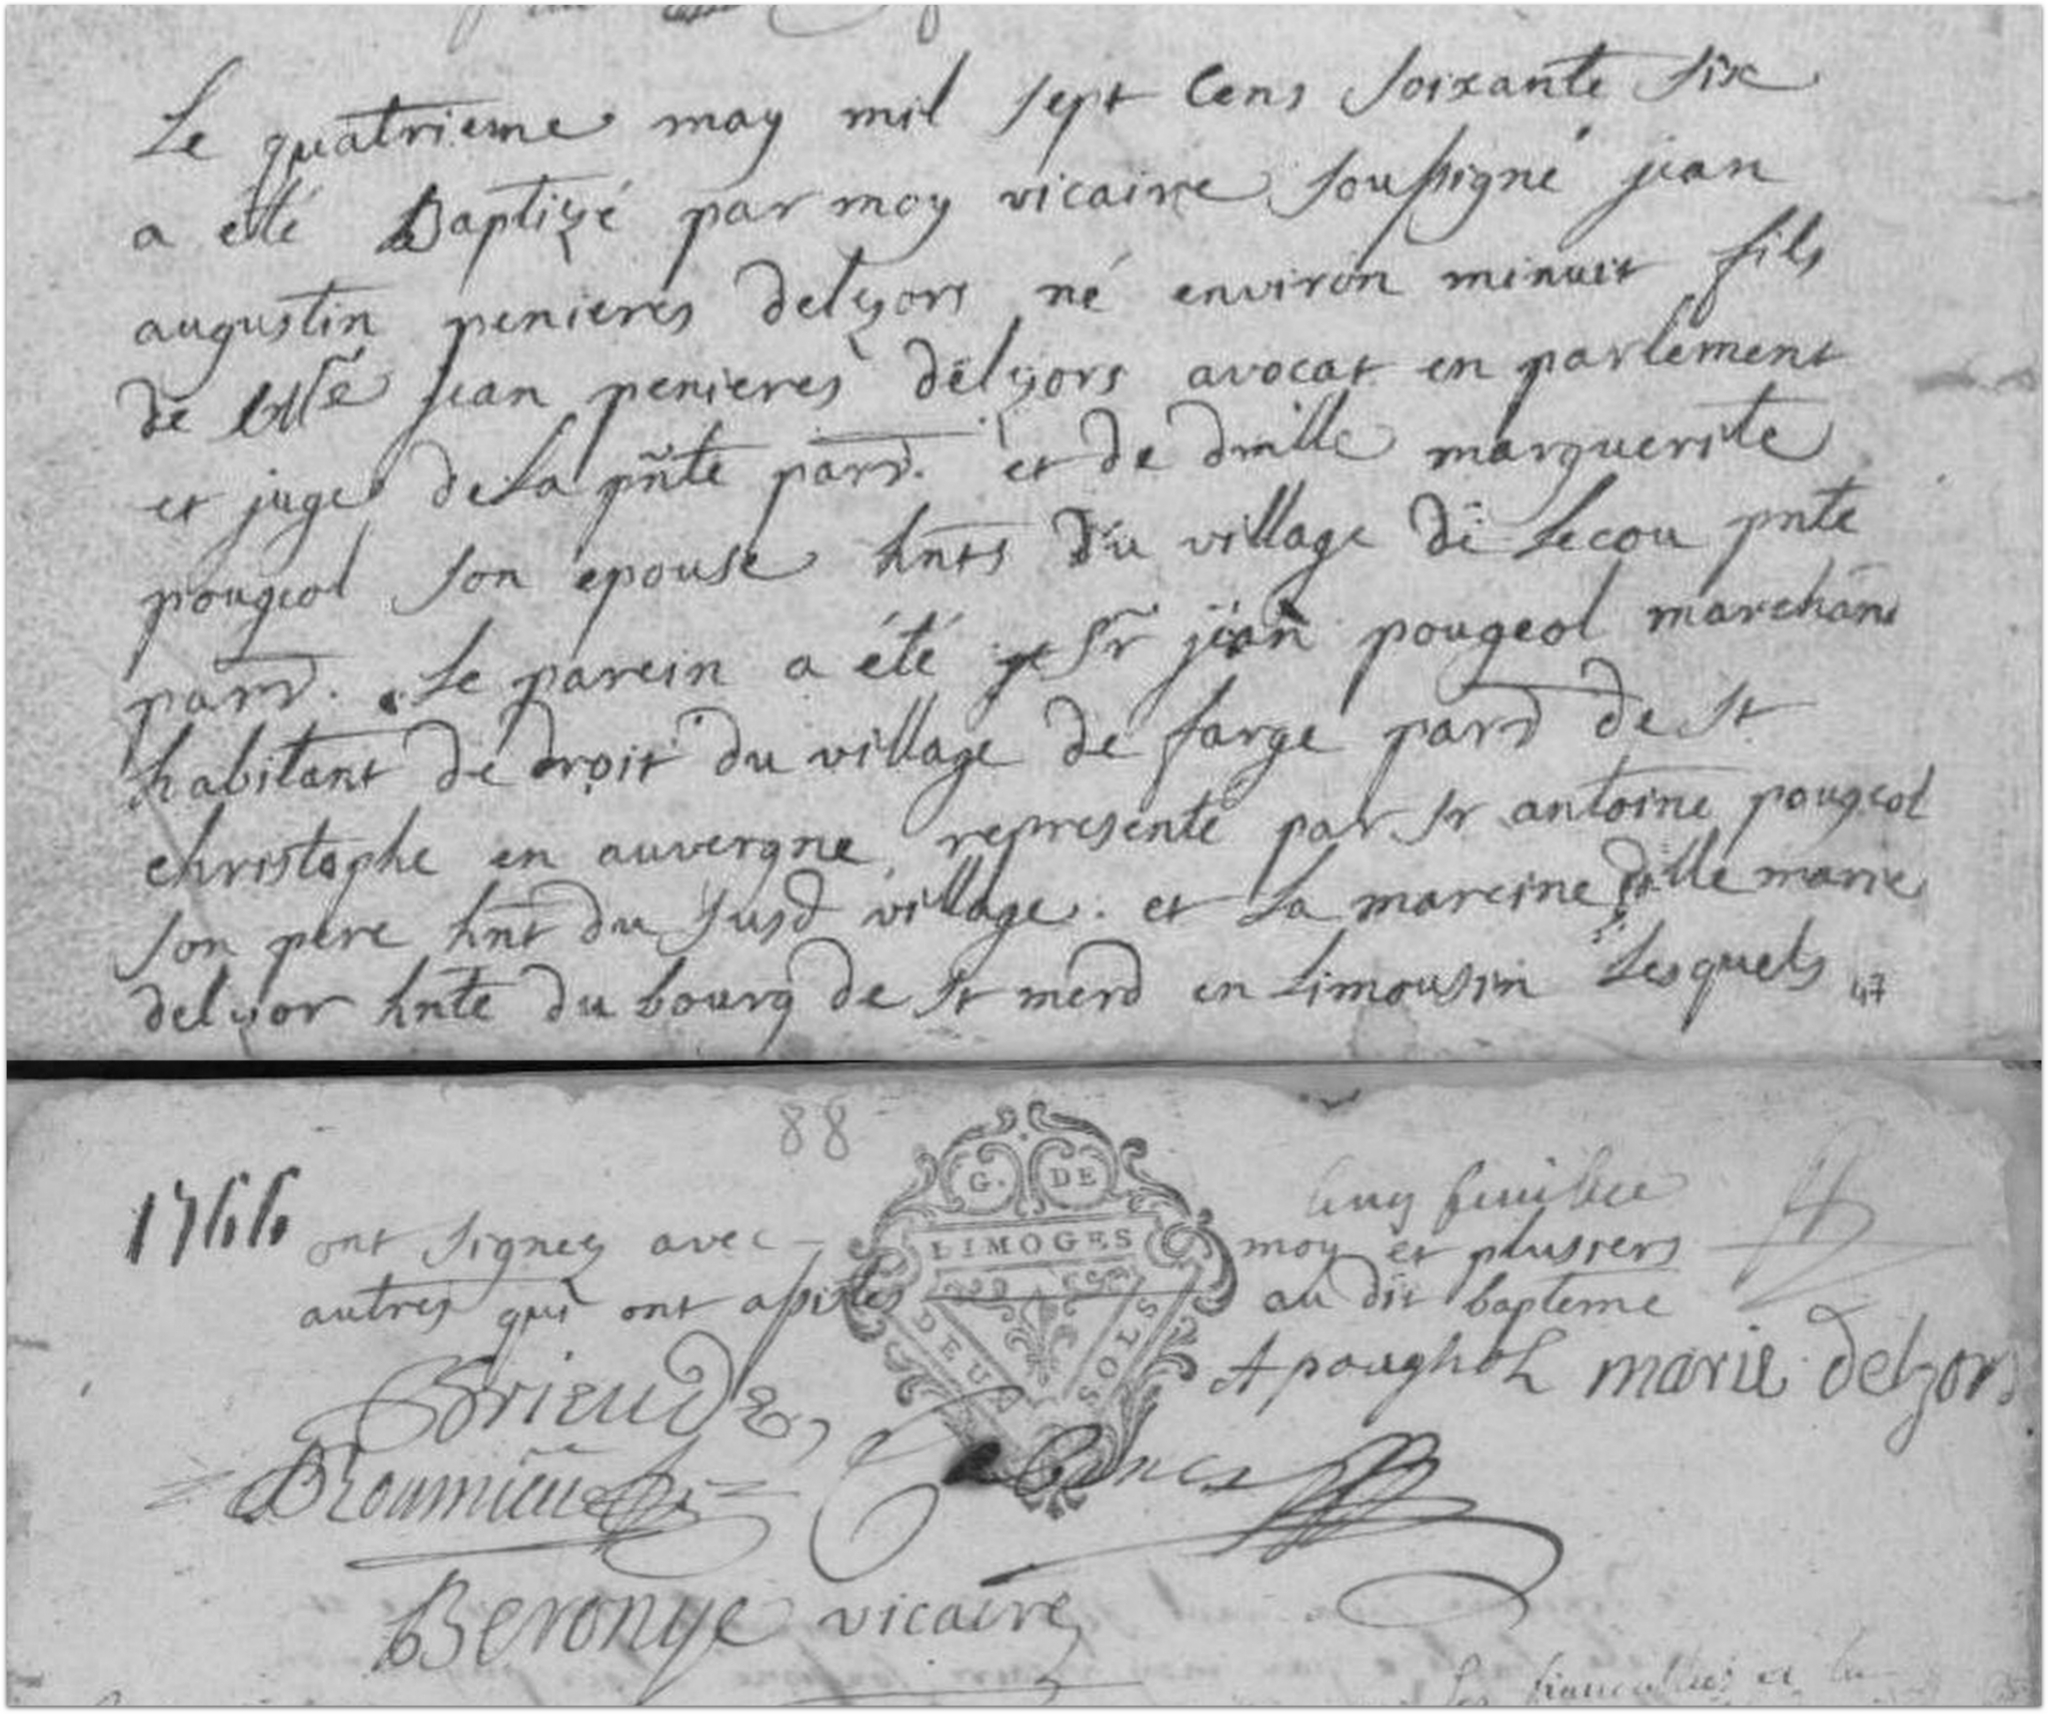 Le quatrieme may mil sept Cens soixante six
a été Baptizé par moy vicaire soussigné jean
augustin penieres delzors né environ minuit fils
de jean penieres delzors avocat en parlement
et juge de la pnte parr. et de dmlle marguerite
pougeol son epouse hnts du village de Lecou pnte
parr. Le parein a été sr jean pougeol marchand
habitant de droit du village de farge parr de st
christophe en auvergne represente par sr antoine pougeol
son pere hnt du susd village. et la mareine dlle marie
delzor hnte du bourg de st merd en Limousin Lesquels 47
88
G. DE
LIMOGES
DEUX SOLS
feuillee
1766 ont signez avec moy et plussiers
autres qui ont assistes au dit bapteme
Brieude A poughol marie delzors
Beronye vicaire